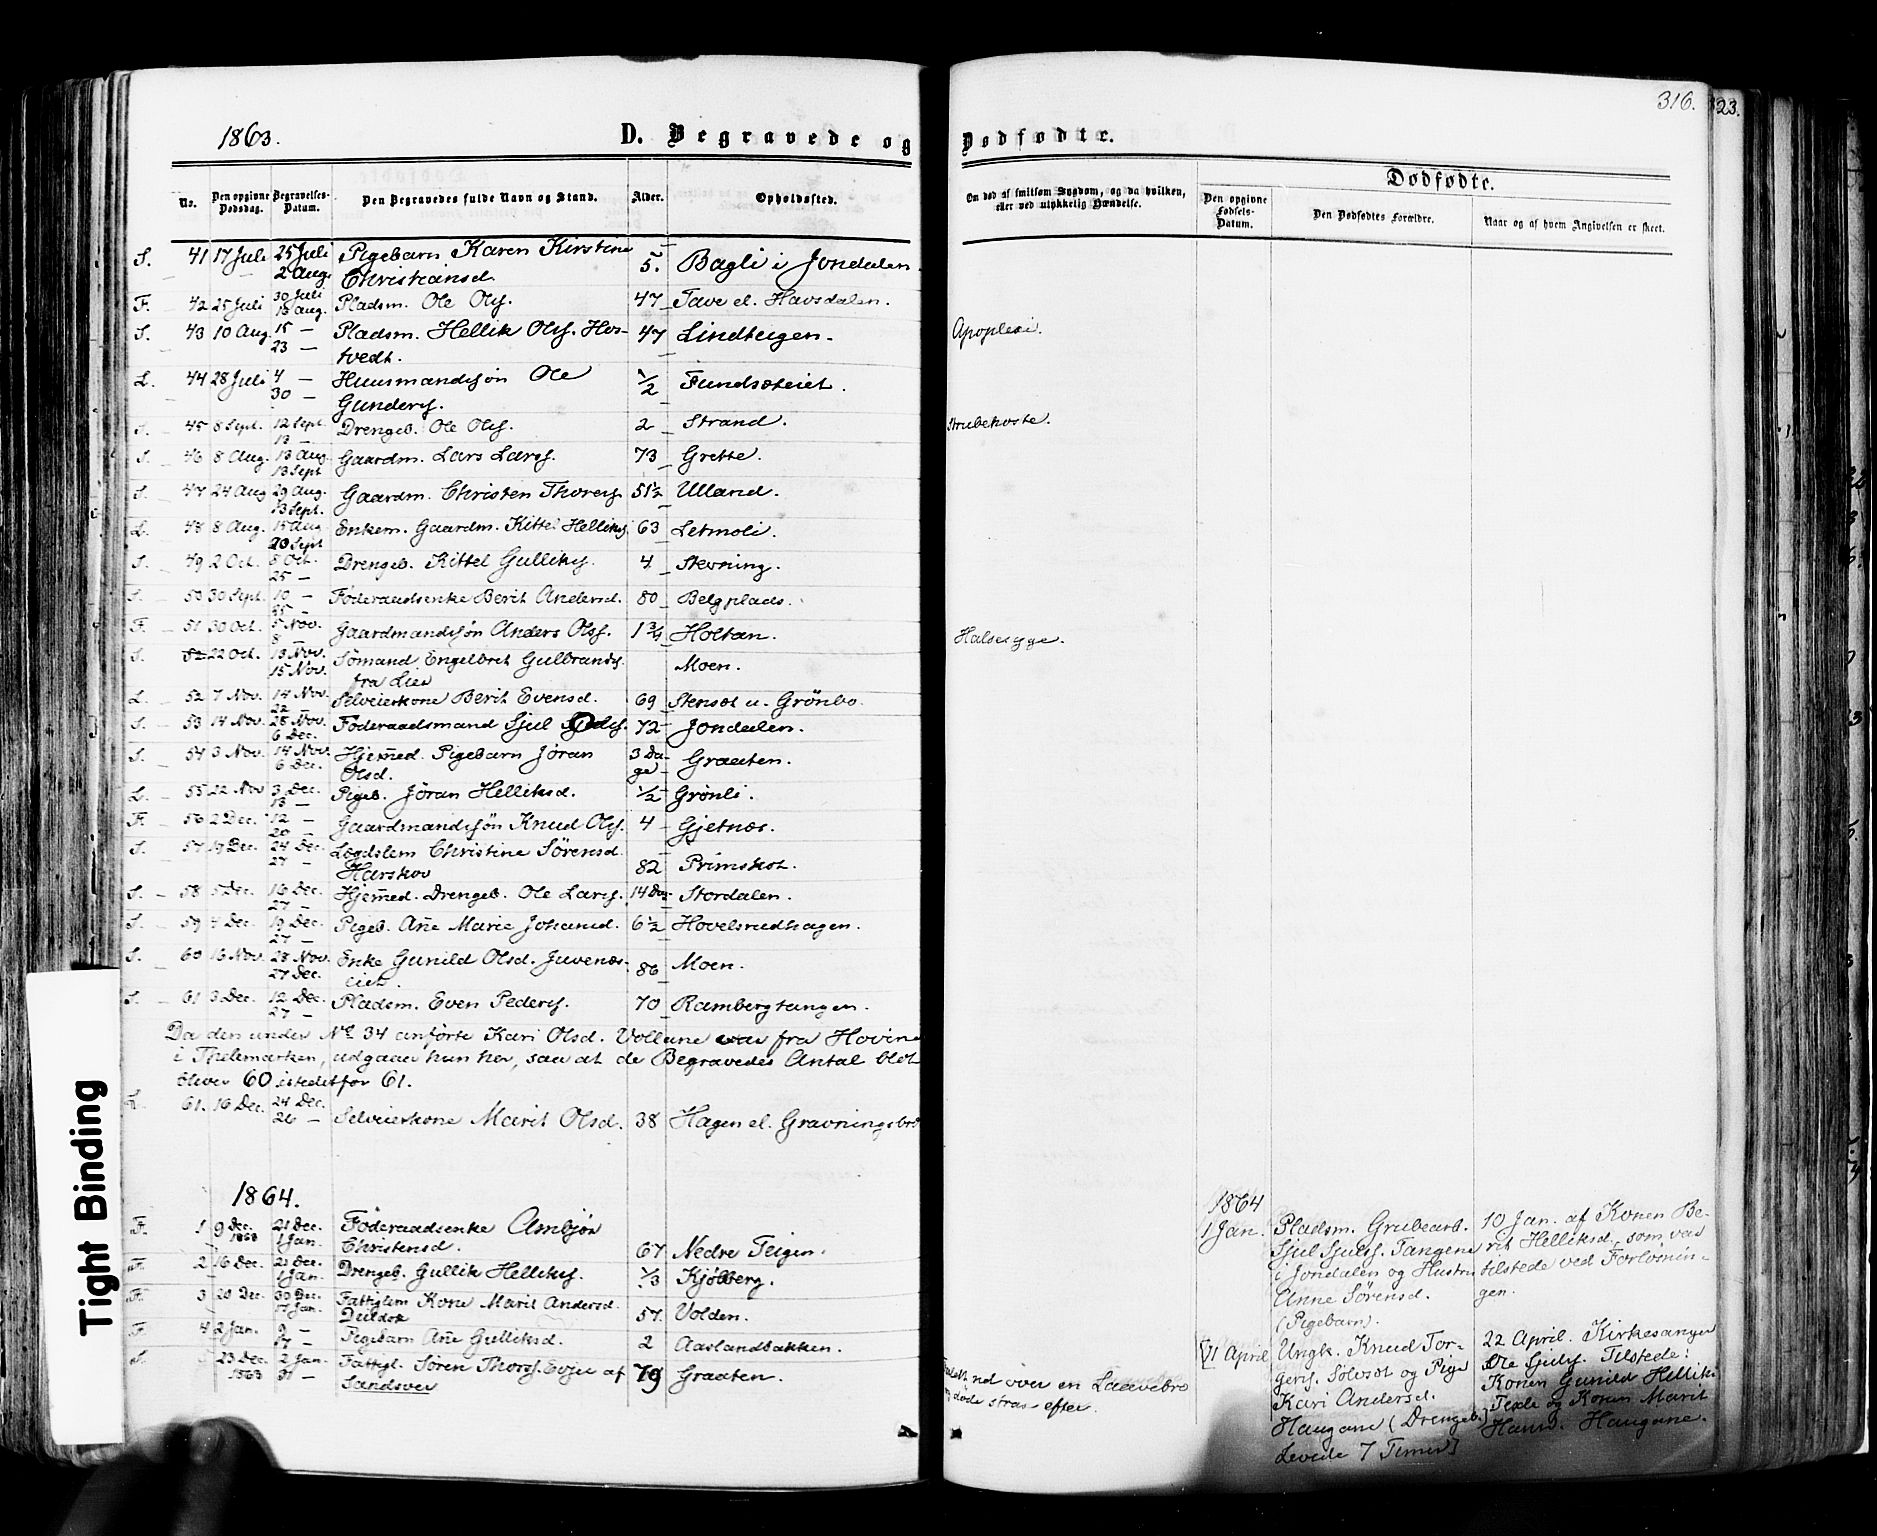 316.
23.
1863.
D. Begravede og Dødfødte.
No. Den opgivne Dødsdag. Begravelses-Datum. Den Begravedes fulde Navn og Stand. Alder. Opholdssted.
Om død af smitsom Sygdom, og da hvilken, eller ved ulykkelig Hændelse.
Dødfødte.
Den opgivne Fødsels-Datum. Den Dødfødtes Forældre. Naar og af hvem Angivelsen er skeet.
S. 41 17 Juli 25 Juli Pigebarn Karen Kirstine
2 Aug. Christiansd. 5. Bagli i Jondalen.
F. 42 25 Juli 30 Juli Pladsm. Ole Ols. 47 Tave el. Havsdalen.
16 Aug.
S. 43 10 Aug 15 — Pladsm. Hellik Ols. Hos- 47 Lindteigen. Apoplexi.
23 — tvedt.
L. 44 28 Juli 4 — Huusmandssøn Ole 1/2 Fundsæteiet.
30 — Gunders.
S. 45 8 Sept. 12 Sept. Drengeb. Ole Ols. 2 Strand. Strubehoste.
13 —
S. 46 8 Aug. 13 Aug. Gaardm. Lars Lars. 73 Grette.
13 Sept
S. 47 24 Aug 29 Aug. Gaardm. Christen Thorers. 51½ Ulland.
13 Sept.
L. 48 8 Aug. 15 Aug Enkem. Gaardm. Kittel Helliks. 63 Letmoli.
20 Sept
S. 49 2 Oct. 8 Oct. Drengeb. Kittel Gulliks. 4 Stevning.
25 —
S. 50 30 Sept. 10 — Føderaadsenke Berit Andersd. 80 Belgplads.
25 —
F. 51 30 Oct. 5 Nov. Gaardmandssøn Anders Ols. 1 3/4 Holtan. Halsesyge.
8 —
S. 52 22 Oct. 13 Nov. Sømand Engelbret Gulbrands. Moen.
15 Nov. fra Lier
L. 52 7 Nov. 14 Nov. Selveierkone Berit Evensd. 69 Stensæt u. Grønbo.
22 —
S. 53 14 Nov. 28 Nov. Føderaadsmand Sjul 72 Jondalen.
6 Dec.
S. 54 3 Nov. 14 Nov. Hjemmed. Pigebarn Jøran 3 Da- Graaten.
6 Dec. Olsd. ge
L. 55 22 Nov 3 Dec. Pigeb. Jøran Helliksd. 1/2 Grønli.
13 —
F. 56 2 Dec. 12 — Gaardmandssøn Knud Ols. 4 Gjetnæs.
20 —
S. 57 19 Dec. 24 Dec. Lægdslem Christine Sørensd.
27 — Harskov 82 Primskot.
S. 58 5 Dec. 16 Dec. Hjemmed. Drengeb. Ole Lars. 14 Da- Stordalen.
27 —
S. 59 4 Dec. 19 Dec. Pigeb. Anne Marie Johansd. 6½ Hovelsrudhagen.
27 —
S. 60 16 Nov. 28 Nov. Enke Gunild Olsd. Juvenæs- 86 Moen.
27 Dec. eiet.
S. 61 3 Dec. 12 Dec. Pladsm. Even Peders. 70 Rambergtangen.
27 —
Da den under No 34 anførte Kari Olsd. Vollane var fra Hovin
i Thelemarken, udgaaer hun her, saa at de Begravedes Antal blot
bliver 60 istedetfor 61.
L. 61. 16 Dec. 24 Dec.
26 — Selveierkone Marit Olsd. 38 Hagen el. Gravningsbro
1864.
F. 1 9 Dec. 1863 21 Dec. Føderaadsenke Ambjør
1 Jan. Christensd. 67 Nedre Teigen.
F. 2 16 Dec. 21 Dec. Drengeb. Gullik Helliks. 1/3 Kjølberg.
1 Jan.
F. 3 20 Dec. 30 Dec. Fattiglem Kone Marit Andersd.
17 Jan. 57. Volden.
F. 4 2 Jan. 9 — Pigebarn Anne Gulliksd. 2 Aaslandbakken.
17 —
S. 5 23 Dec. 1863 2 Jan. Fattigl. Søren Thors. Evju af 79 Graaten.
31 — Sandsver
ned over en Laavebro
døde strax efter.
1864
1 Jan. Pladsm. Grubearb.
Sjul Sjuls. Tangene
i Jondalen og Hustru
Anne Sørensd.
(Pigebarn).
10 Jan. af Konen Be-
rit Helliksd., som var
tilstede ved Forløsnin-
gen.
[21 April Ungk. Knud Tor-
gers. Solvsæt og Pige
Kari Andersd.
Haugane (Drengeb.)
Levede 7 Timer]
22 April. Kirkesanger
Ole Sjuls. Tilstede:
Konen Gunild Helliks.
Texle og Konen Marit
Hansd. Haugane.
Tight Binding